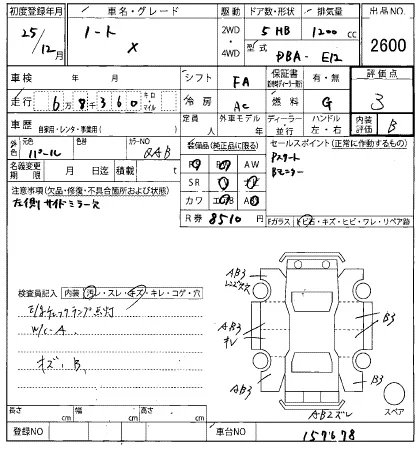 初度登録年月 車名・グレード 駆動 ドア数・形状 排気量 出品NO.
25/12月 ノート X 2WD・4WD 5 HB 1200 cc 2600
型式 DBA- E12
車検 年 月 シフト FA 保証書 有・無 評価点
走行 6万8千360 キロ マイル 冷房 AC 燃料 G 3
車歴 自家用・レンタ・事業用( ) 定員 人 外車モデル 年 ディーラー・並行 ハンドル 左・右 内装評価 B
色 元色 パール カラーNO QAB 装備品(純正品に限る) セールスポイント(正常に作動するもの)
名義変更期限 月 日迄 積載 t AW Pスタート
SR Bモニター
注意事項(欠品・修復・不具合箇所および状態) カワ
左側サイドミラー欠 R券 8510 円 Fガラス トビ石・キズ・ヒビ・ワレ・リペア跡
検査員記入 内装 汚レ・スレ・キズ・キレ・コゲ・穴
E/gチェックランプ点灯
W/C・A
キズ・B
AB3
AB3
AB3
B3
B3
AB2ズレ
スペア
長さ cm 幅 cm 高さ cm
登録NO 車台NO 157678